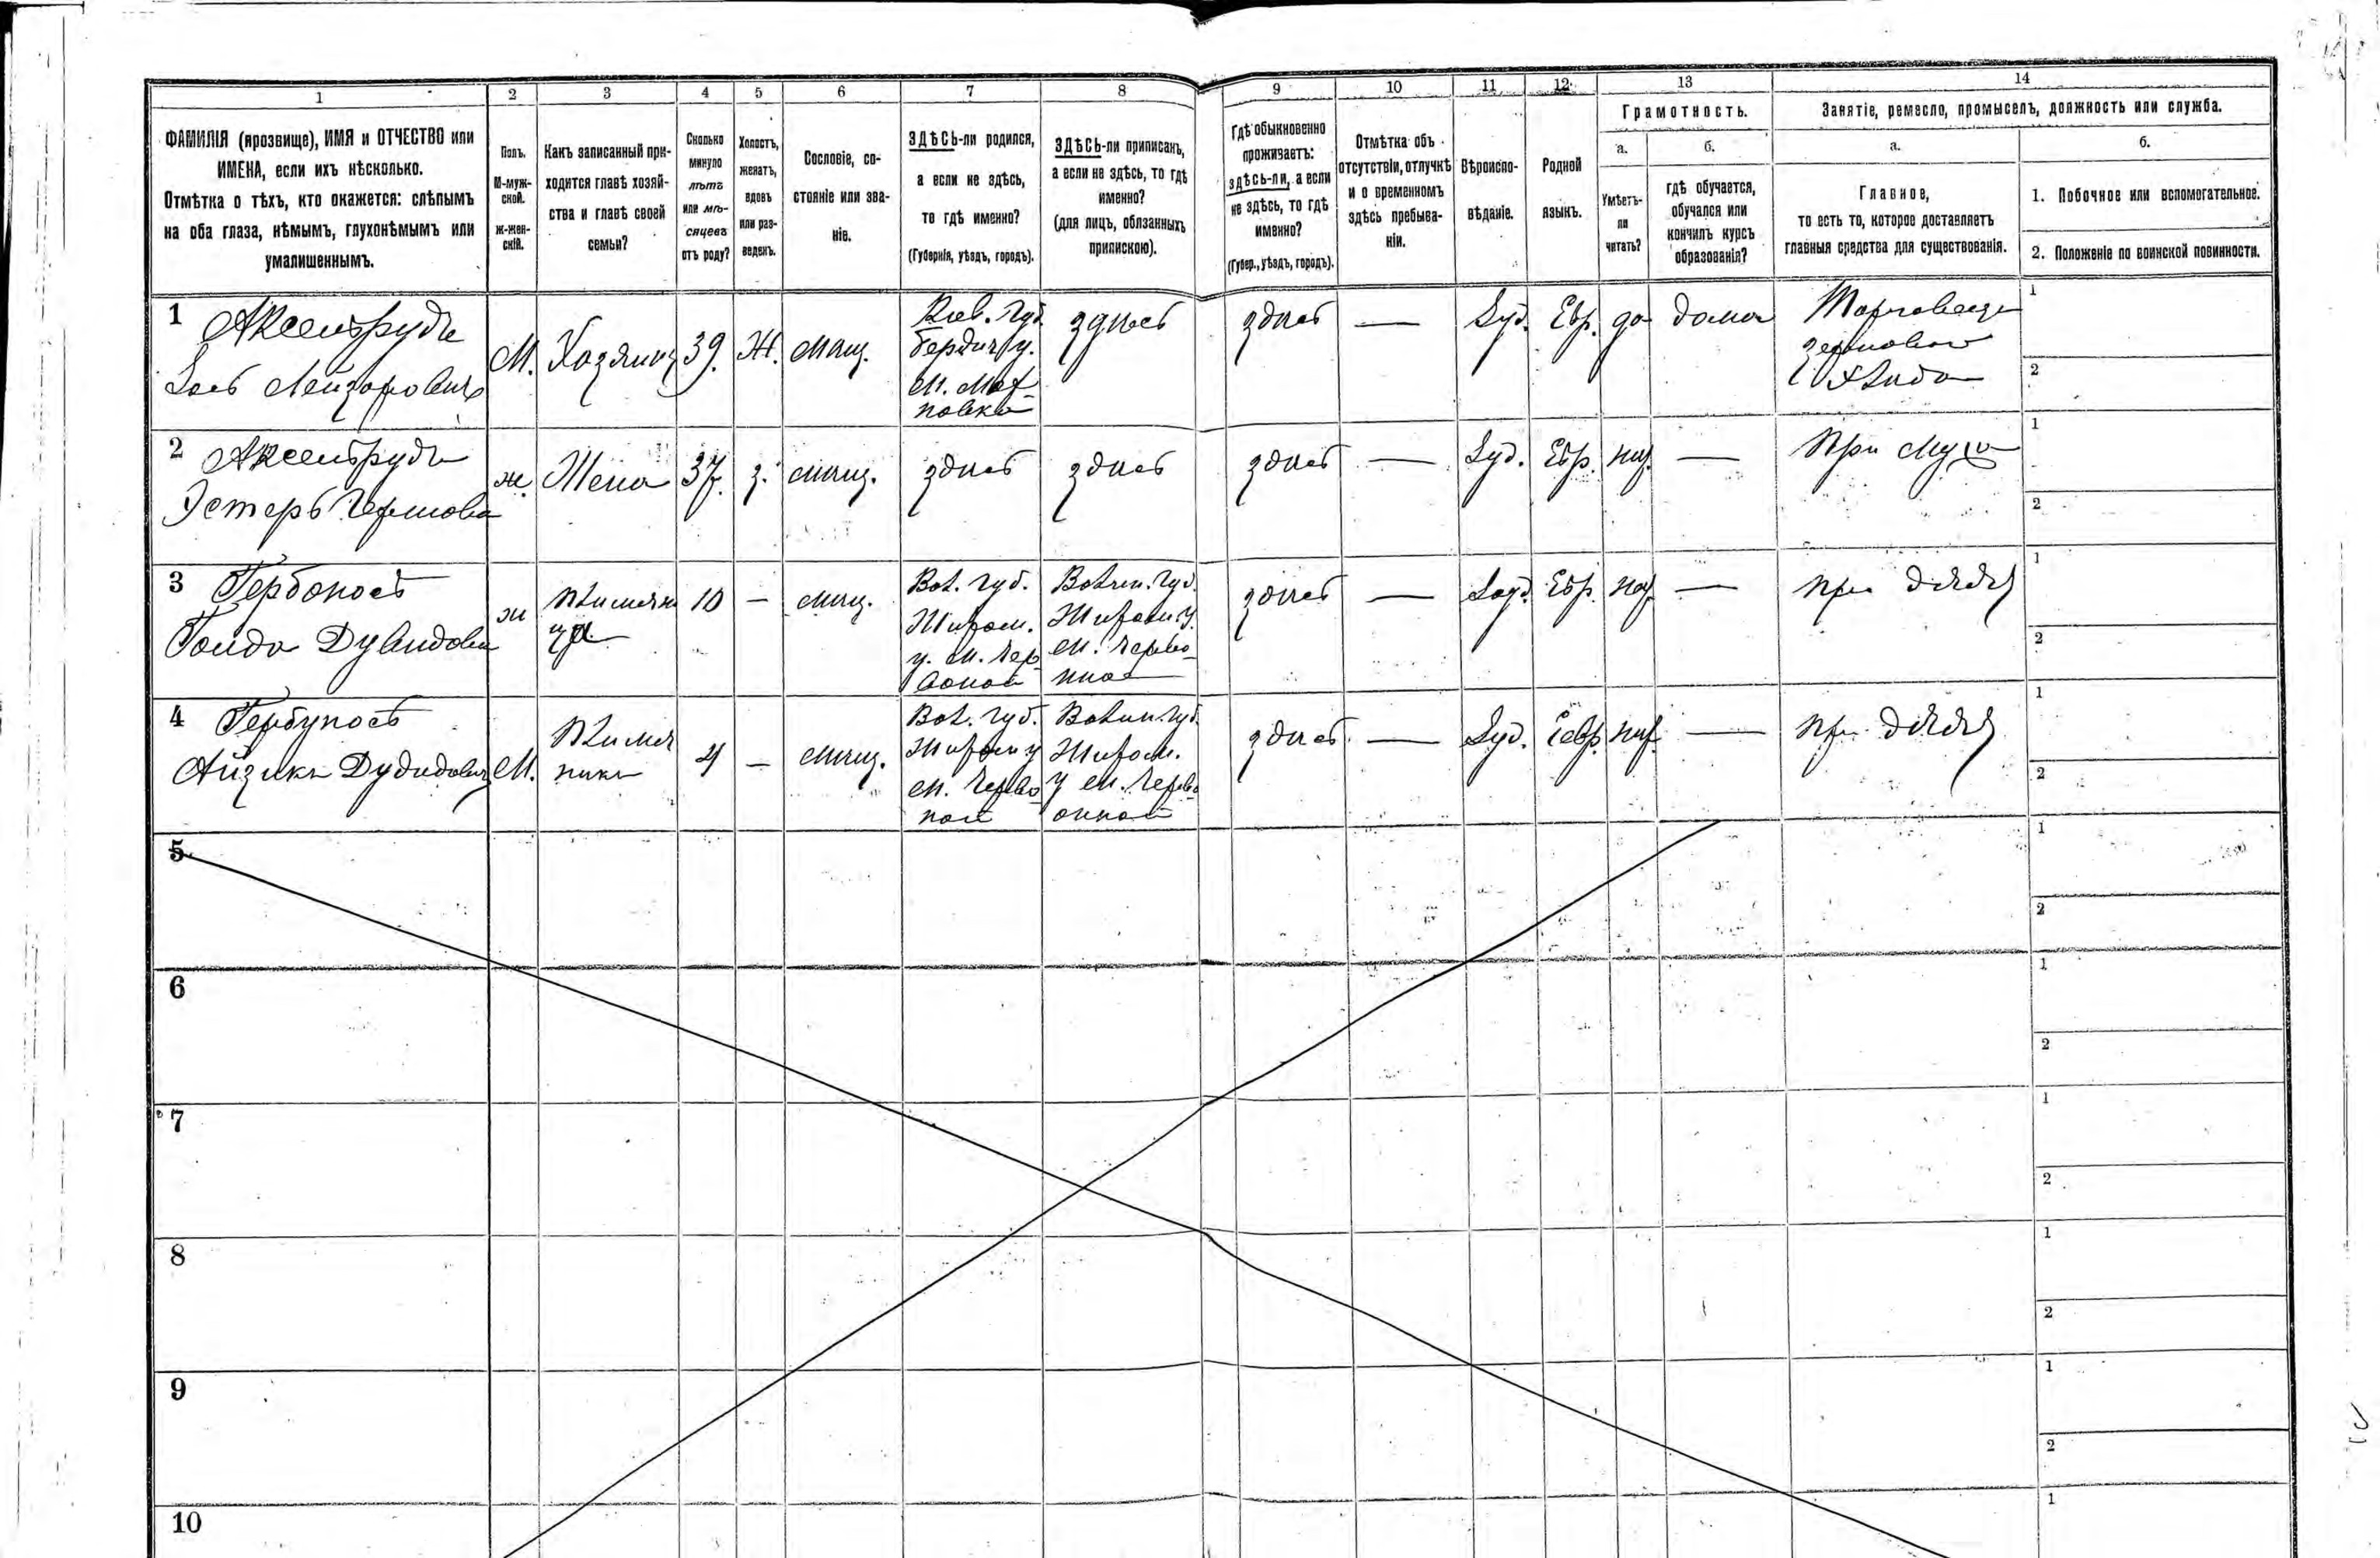 1
2
3
4
5
6
7
8
9
10
11
12
13
14
ФАМИЛІЯ (прозвище), ИМЯ и ОТЧЕСТВО или
ИМЕНА, если ихъ нѣсколько.
Отмѣтка о тѣхъ, кто окажется: слѣпымъ
на оба глаза, нѣмымъ, глухонѣмымъ или
умалишеннымъ.
Полъ.
М-муж-
ской.
Ж-жен-
скій.
Какъ записанный при-
ходится главѣ хозяй-
ства и главѣ своей
семьи?
Сколько
минуло
лѣтъ
или мѣ-
сяцевъ
отъ роду?
Холостъ,
женатъ,
вдовъ
или раз-
веденъ.
Сословіе, со-
стояніе или зва-
ніе.
ЗДѢСЬ-ли родился,
а если не здѣсь,
то гдѣ именно?
(Губернія, уѣздъ, городъ).
ЗДѢСЬ-ли приписанъ,
а если не здѣсь, то гдѣ
именно?
(для лицъ, обязанныхъ
припискою).
Гдѣ обыкновенно
проживаетъ:
здѣсь-ли, а если
не здѣсь, то гдѣ
именно?
(Губер., уѣздъ, городъ).
Отмѣтка объ
отсутствіи, отлучкѣ
и о временномъ
здѣсь пребыва-
ніи.
Вѣроиспо-
вѣданіе.
Родной
языкъ.
Грамотность.
а.
Умѣетъ-
ли
читать?
б.
гдѣ обучается,
обучался или
кончилъ курсъ
образованія?
Занятіе, ремесло, промыселъ, должность или служба.
а.
Главное,
то есть то, которое доставляетъ
главныя средства для существованія.
б.
1. Побочное или вспомогательное.
2. Положеніе по воинской повинности.
1 Аксельрудъ
Лейзоровичъ
М.
Хозяинъ
39.
Ж.
мѣщ.
Кіев. губ.
Бердич. у.
м. Мах-
новка
здѣсь
здѣсь
—
Іуд.
Евр.
да
дома
Торговецъ
зернового
хлѣба
1
2
2 Аксельрудъ
Эстеръ Гершкова
ж.
Жена
37.
з.
мѣщ.
здѣсь
здѣсь
здѣсь
—
Іуд.
Евр.
нѣт
—
При мужѣ
1
2
3
ж
племян
ца
10
—
мѣщ.
Вол. губ.
Житом.
у. м. Чер
Волын. губ.
Житом. у.
м. Черво
здѣсь
—
Іуд.
Евр.
нѣт
—
при дядѣ
1
2
4
Айзикъ
М.
Племя
никъ
4
—
мѣщ.
Вол. губ.
Житом у
м. Черво
ной
Волын. губ.
Житом.
у м. Черво
онной
здѣсь
—
Іуд.
Евр.
нѣт
—
при дядѣ
1
2
5
1
2
6
1
2
7
1
2
8
1
2
9
1
2
10
1